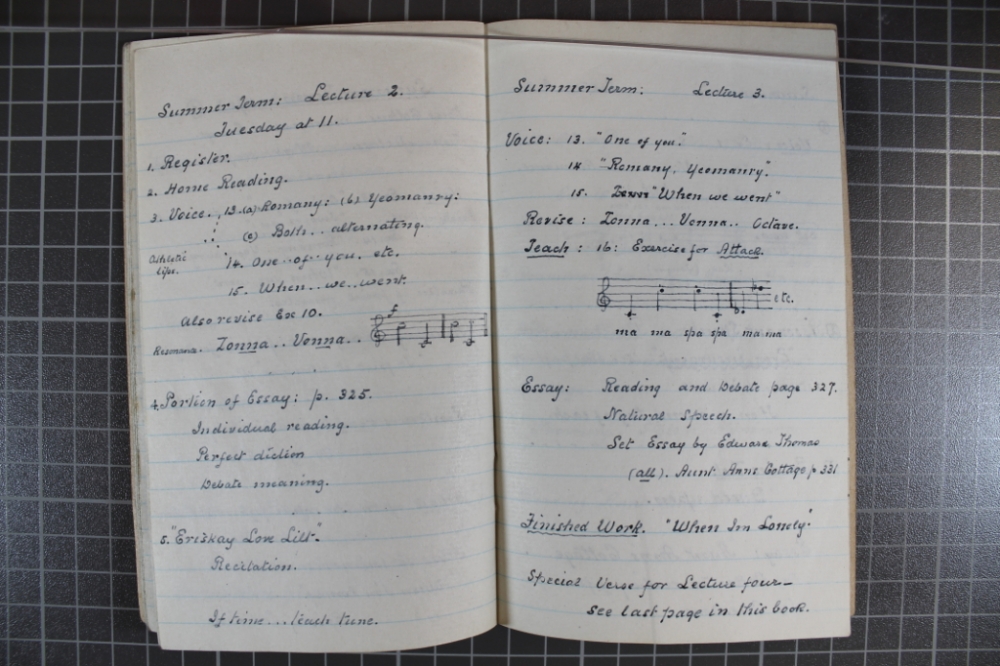 Summer Term: Lecture 2.
Tuesday at 11.
1. Register.
2. Home Reading.
3. Voice. 13. (a) Romany: (b) Yeomanry:
(c) Both.. alternating.
Athletic
lips.
14. One..of..you. etc.
15. When..we..went.
Also revise Ex 10.
f
Resonance. Zonna.. Vonna..
4. Portion of Essay: p. 325.
Individual reading.
Perfect diction
Debate meaning.
5. "Eriskay Love Lilt".
Recitation.
If time... teach tune.
Summer Term: Lecture 3.
Voice: 13. "One of you".
14 "Romany, Yeomanry".
15. "When we went"
Revise: Zonna... Vonna.. Octave.
Teach: 16: Exercise for Attack.
etc.
ma ma spa spa ma ma
Essay: Reading and Debate page 327.
Natural Speech.
Set Essay by Edward Thomas
(all). Aunt Anns Cottage p 331
Finished Work. "When Im Lonely"
Special Verse for Lecture four—
see last page in this book.